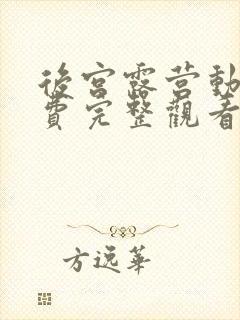 後宮露营動
費完整觀看
方逸華